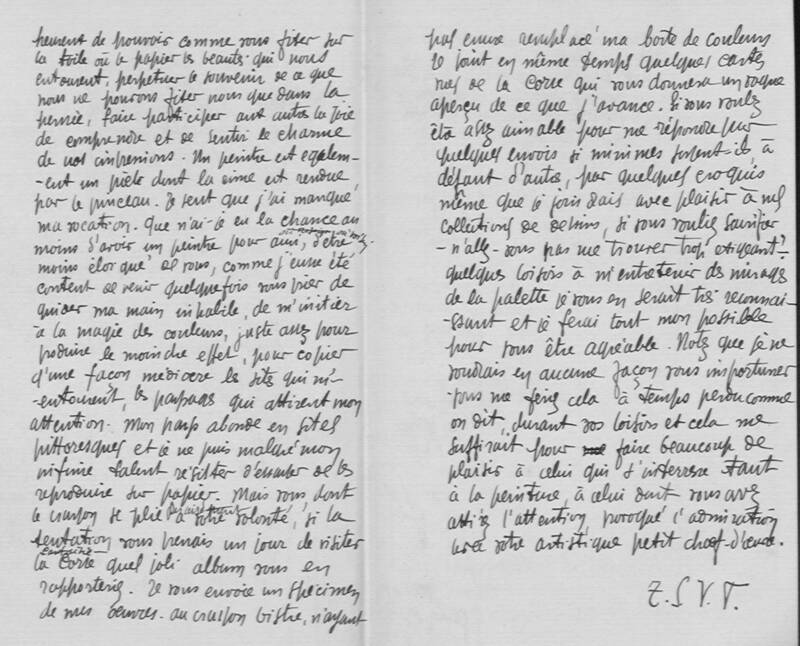 heureux de pouvoir comme vous fixer sur
la toile ou le papier les beautés qui nous
entourent, perpétuer le souvenir de ce que
nous ne pouvons fixer nous que dans la
pensée, faire participer aux autres la joie
de comprendre et de sentir le charme
de nos impressions. Un peintre est egalem-
-ent un poète dont la rime est rendue
par le pinceau. Je sent que j'ai manqué
ma vocation. Que n'ai-je eu la chance au
moins d'avoir un peintre pour ami, d'être
moins éloigné de vous, comme j'eusse été
content de venir quelquefois vous prier de
guider ma main inhabile, de m'initier
à la magie des couleurs, juste assez pour
produire le moindre effet, pour copier
d'une façon médiocre les sites qui m'-
-entourent, les paysages qui attirent mon
attention. Mon pays abonde en sites
pittoresques et je ne puis malgré mon
infime talent résister d'essayer de les
reproduire sur papier. Mais vous dont
le crayon se plie à votre volonté, si la
tentation vous prenait un jour de visiter
la Corse quel joli album vous en
rapporteriez. Je vous envoie un spécimen
de mes oeuvres. au crayon bistre, n'ayant
pas encore remplacé ma boîte de couleurs
Je joint en même temps quelques cartes
vues de la Corse qui vous donnera un vague
aperçu de ce que j'avance. Si vous voulez
être assez aimable pour me répondre par
quelques envois si minimes soyent-ils, à
défaut d'autre, par quelques croquis
même que je joindrais avec plaisir à mes
collections de dessins, si vous vouliez sacrifier
- n'allez-vous pas me trouver trop exigeant? -
quelques loisirs à m'entretenir des mirages
de la palette je vous en serait très reconnai-
-ssant et je ferai tout mon possible
pour vous être agréable. Notez que je ne
voudrais en aucune façon vous importuner
vous me feriez cela à temps perdu comme
on dit, durant vos loisirs et cela me
suffirait pour faire beaucoup de
plaisir à celui qui s'interresse tant
à la peinture, à celui dont vous avez
attiré l'attention, provoqué l'admiration
avec votre artistique petit chef-d'œuvre.